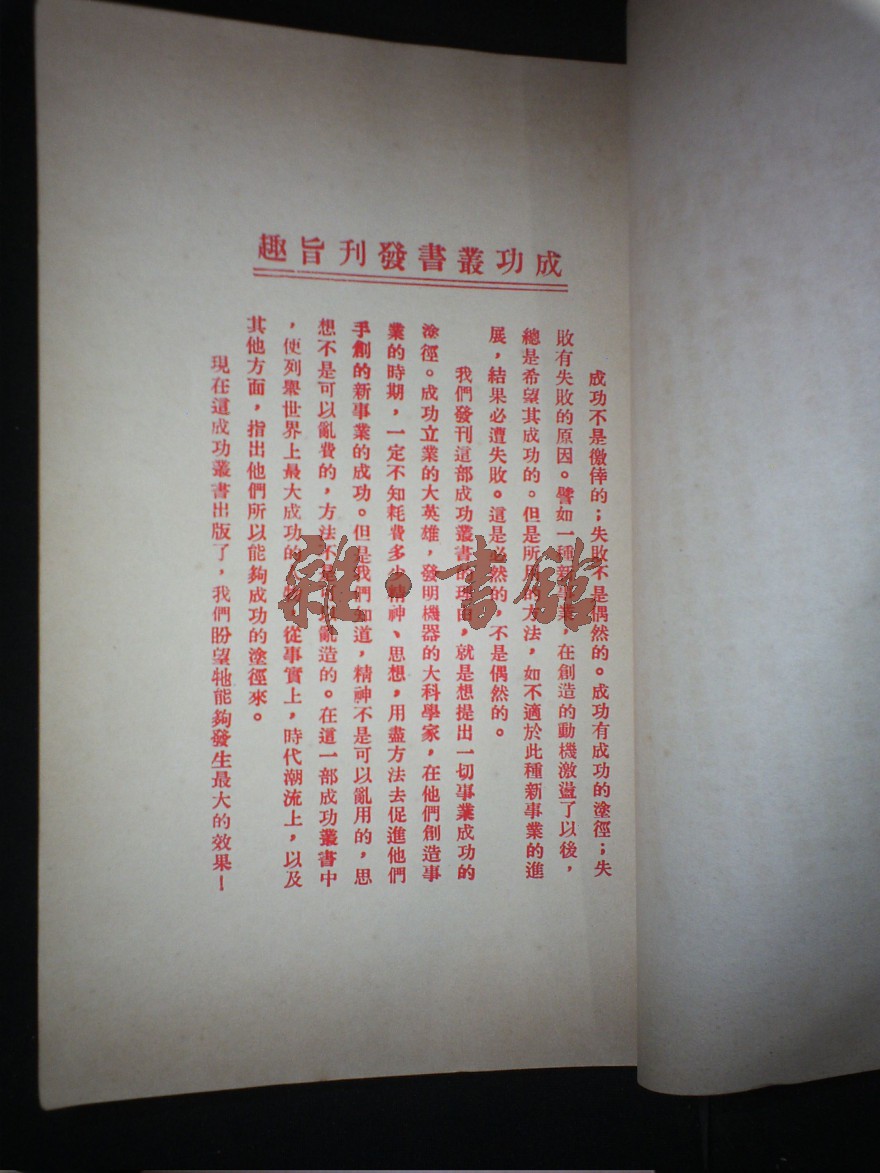 成功叢書發刊旨趣
成功不是徼倖的；失敗不是偶然的。成功有成功的塗徑；失
敗有失敗的原因。譬如一種新事業，在創造的動機激盪了以後，
總是希望其成功的。但是所用的方法，如不適於此種新事業的進
展，結果必遭失敗。這是必然的，不是偶然的。
我們發刊這部成功叢書的理由，就是想提出一切事業成功的
塗徑。成功立業的大英雄，發明機器的大科學家，在他們創造事
業的時期，一定不知耗費多少精神、思想，用盡方法去促進他們
手創的新事業的成功。但是我們知道，精神不是可以亂用的，思
想不是可以亂費的，方法不是可以亂造的。在這一部成功叢書中
，便列舉世界上最大成功的，從事實上，時代潮流上，以及
其他方面，指出他們所以能夠成功的塗徑來。
現在這成功叢書出版了，我們盼望牠能夠發生最大的效果！
雜·書館